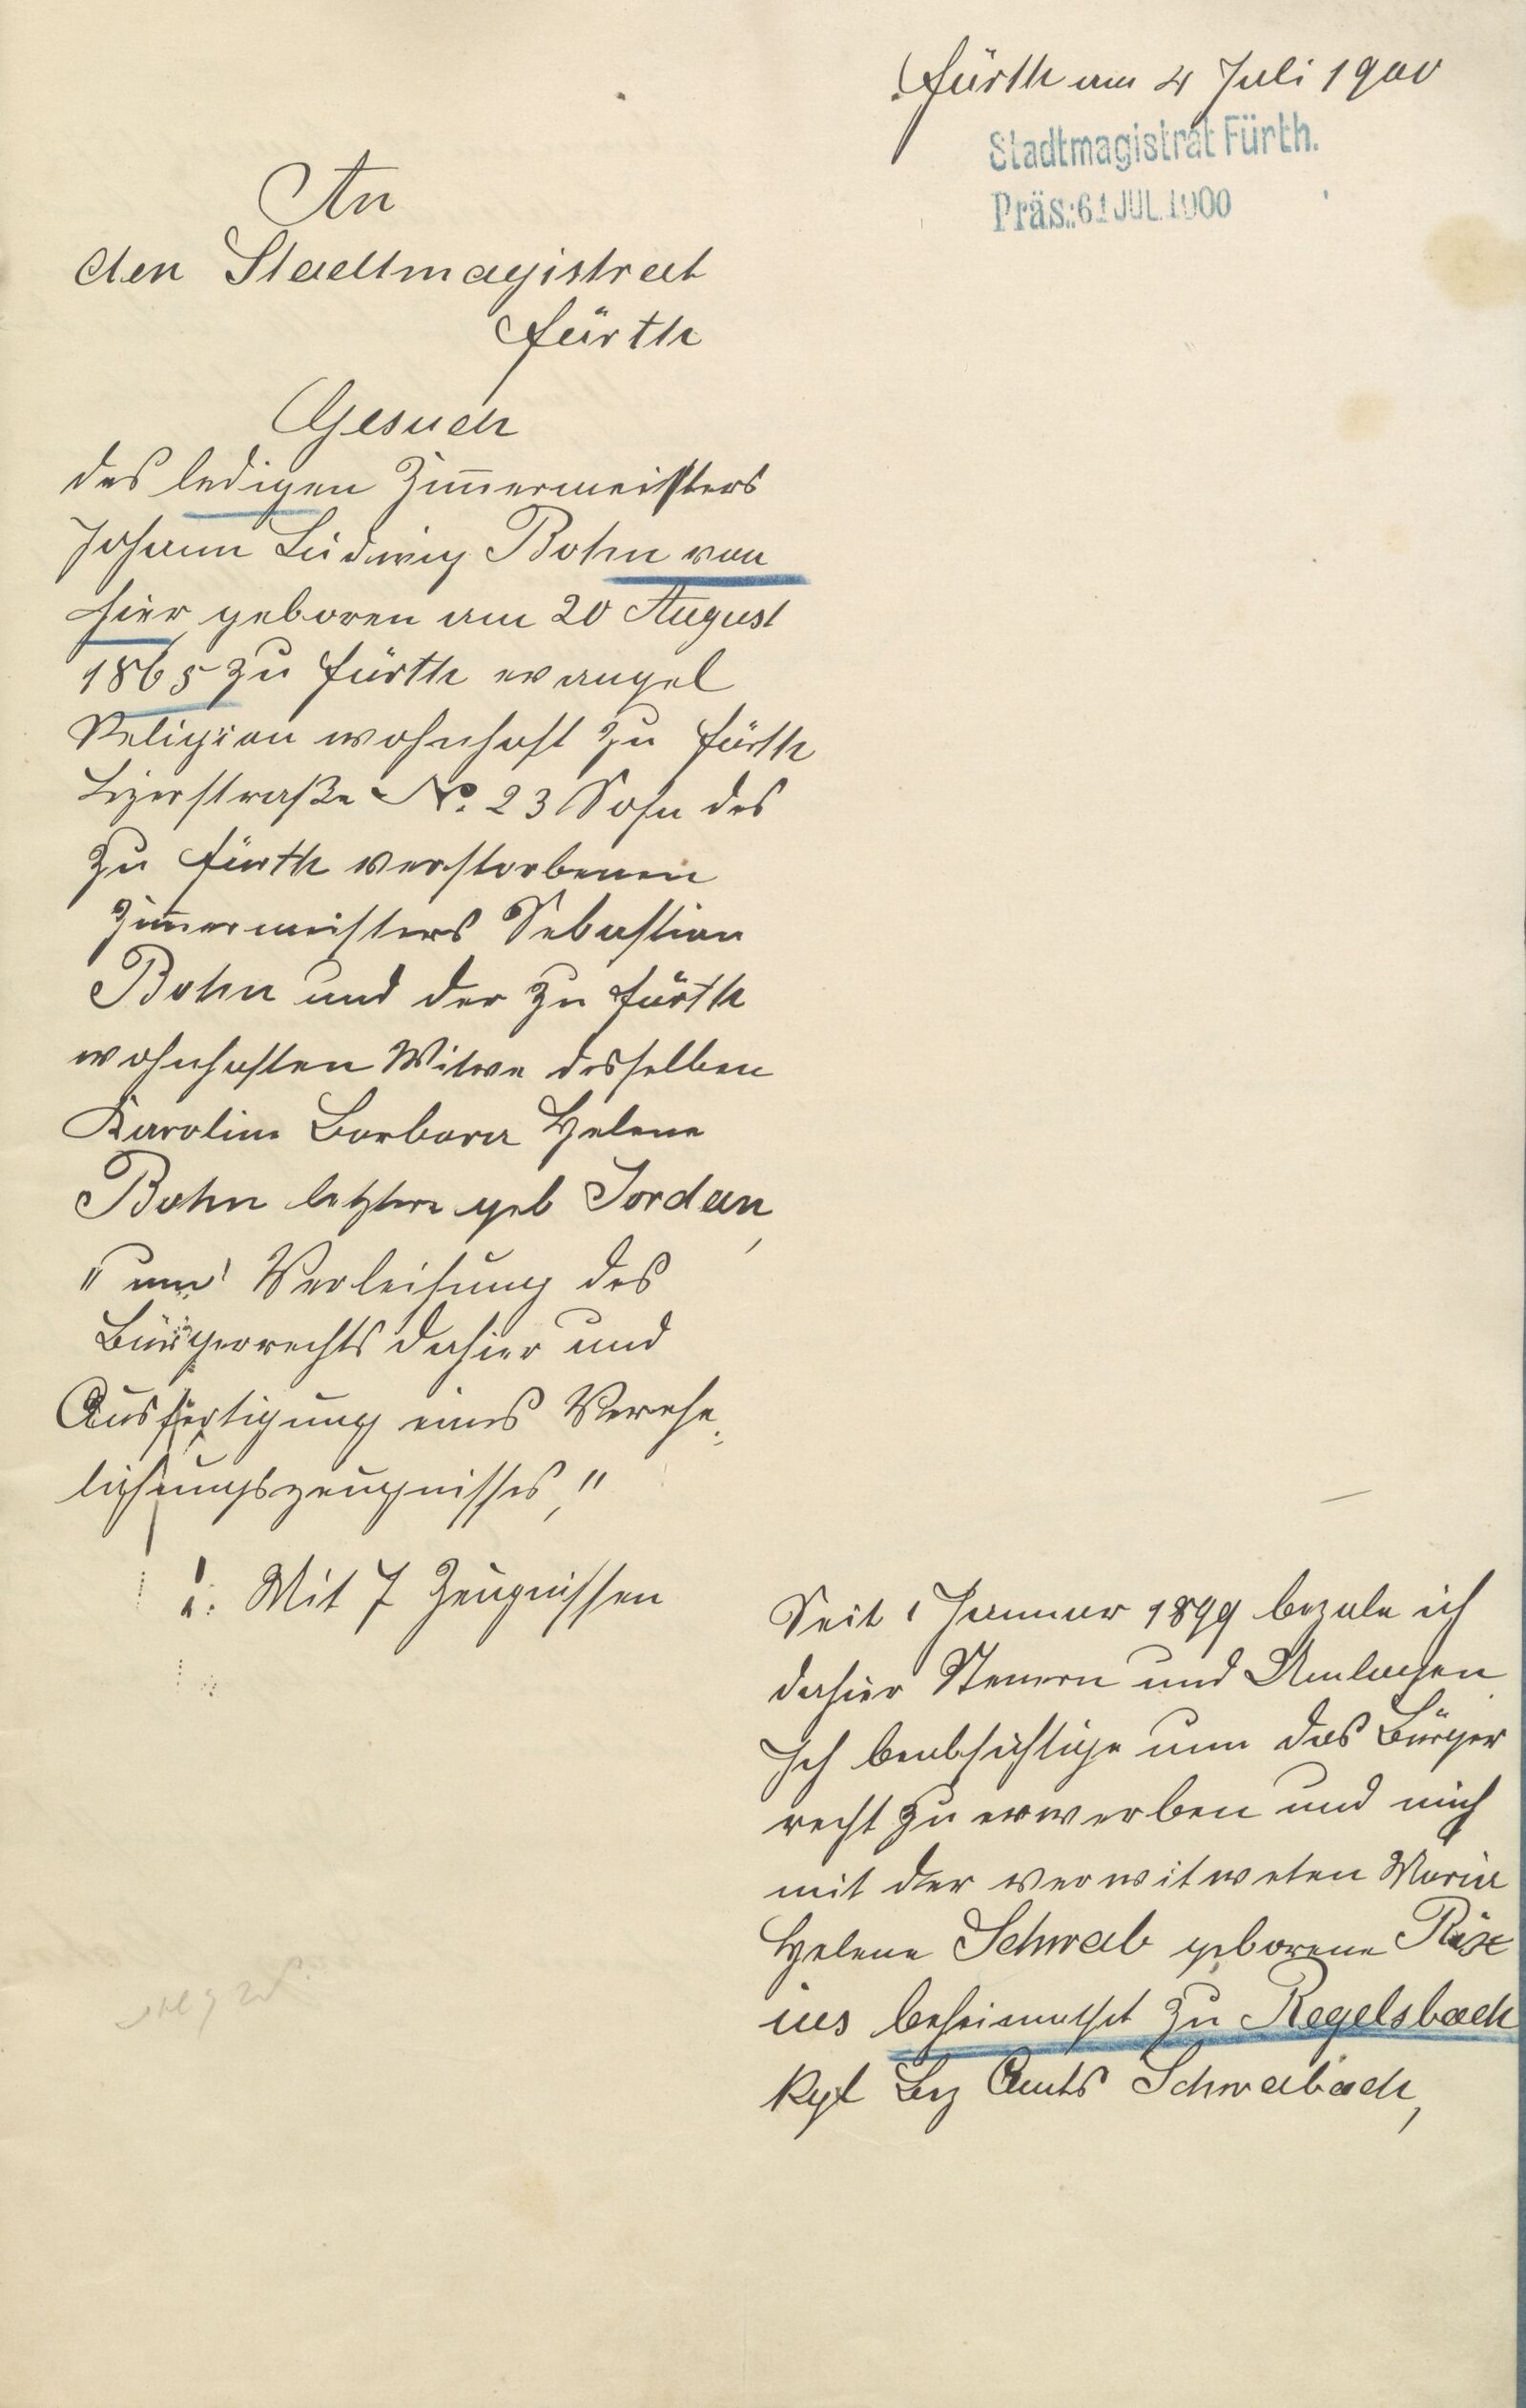 Fürth am 4 Juli 1900
Stadtmagistrat Fürth.
Präs.: 6 JUL. 1900
An
den Stadtmagistrat
Fürth
Gesuch
des ledigen Zim̅ermeisters
Johann Ludwig Bohn von
hier geboren am 20 August
1865 zu Fürth evangel
Religion wohnhaft zu Fürth
No. 23 Sohn des
zu Fürth verstorbenen
Zim̅ermeisters Sebastian
Bohn und der zu Fürth
wohnhaften Witwe desselben
Karoline Barbara Helene
Bohn letztere geb Jordan,
"um" Verleihung des
Bürgerrechts dahier und
Ausfertigung eines Verehe-
lichungszeugnisses,"
Mit 7 Zeugnissen
Seit 1 Januar 1899 bezale ich
dahier Steuern und Umlagen
Ich beabsichtige nun das Bürger
recht zu erwerben und mich
mit der verwitweten Maria
Helene Schwab geborene Rix
ius beheimathet zu Regelsbach
kgl Bez Amts Schwabach,